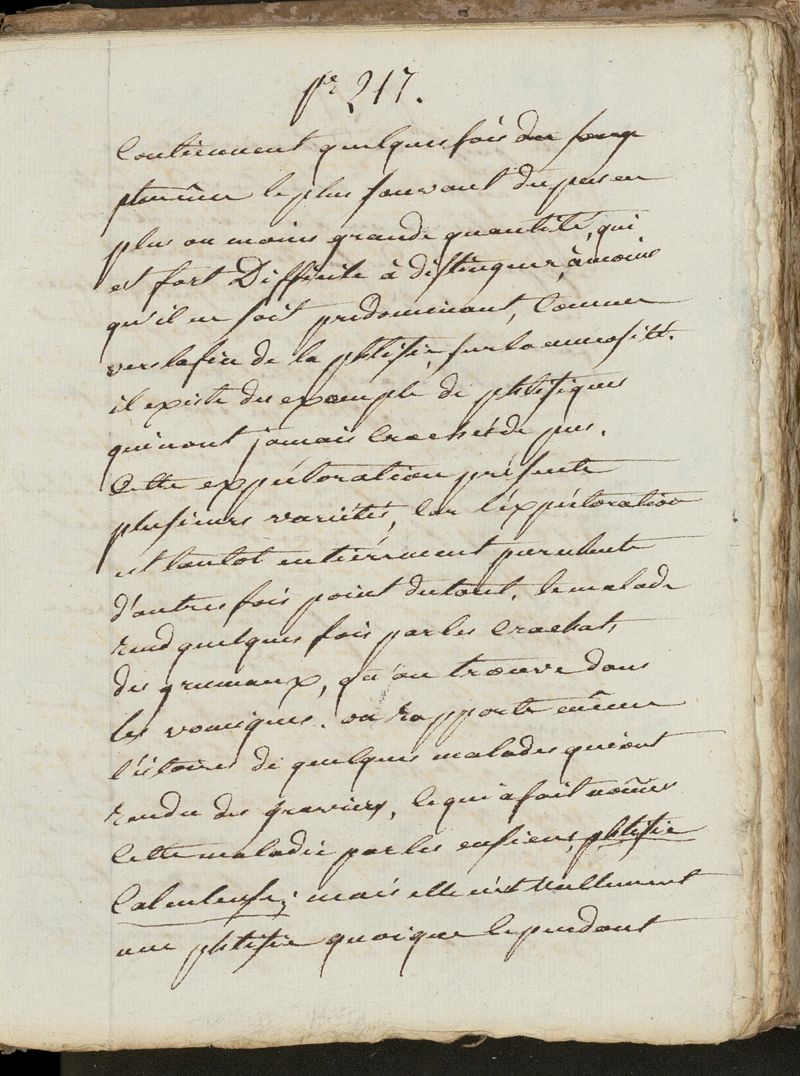 pe 217.
Contiennent quelques fois du sang
le plus souvant du pus en
plus ou moins grande quantité, qui
est fort Difficile à distinguer, àmoins
qu'il ne soit predominant, Comme
vers lafin de la phtisie, sur la mucosité.
il existe des exemple de phtisiques
qui n'ont jamais Crachés de pus.
Cette expéctoration présente
plusieurs variétés, Car l'éxpéctoration
est tantot entièrement purulente
d'autres fois point dutout. le malade
rend quelques fois par les Crachats
des grumaux, qu'on trouve dans
les vomiques. on rapporte même
l'istoires de quelques malades qui ont
rendu des graviers, Ce qui a fait nômer
Cette maladie par les ansiens, phtisie
Calculeuse; mais elle n'est nullement
une phtisie quoique Cependant